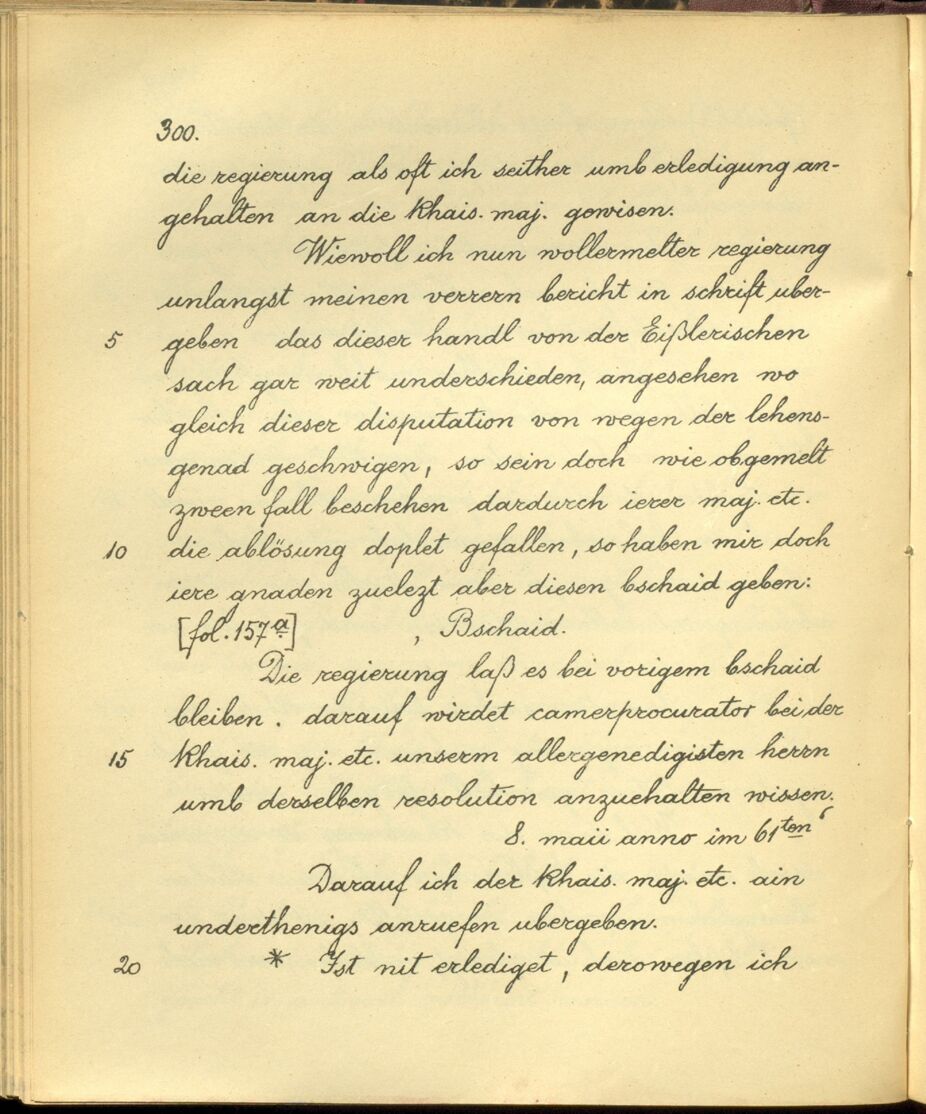 300.
die regierung als oft ich seither umb erledigung an-
gehalten an die khais. maj. gewisen.
Wiewoll ich nun wollermelter regierung
unlangst meinen verrern bericht in schrift uber-
5 geben das dieser handl von der Eißlerischen
sach gar weit underschieden, angesehen wo
gleich dieser disputation von wegen der lehens-
genad geschwigen, so sein doch wie obgemelt
zween fall beschehen dardurch ierer maj. etc.
10 die ablösung doplet gefallen, so haben mir doch
iere gnaden zuelezt aber diesen bschaid geben:
[fol. 157a] , Bschaid.
Die regierung laß es bei vorigem bschaid
bleiben. darauf wirdet camerprocurator bei der
15 khais. maj. etc. unserm allergenedigisten herrn
umb derselben resolution anzuehalten wissen.
8. maii anno im 61ten ‘
Darauf ich der khais. maj. etc. ain
underthenigs anruefen ubergeben.
20 * Ist nit erlediget, derowegen ich